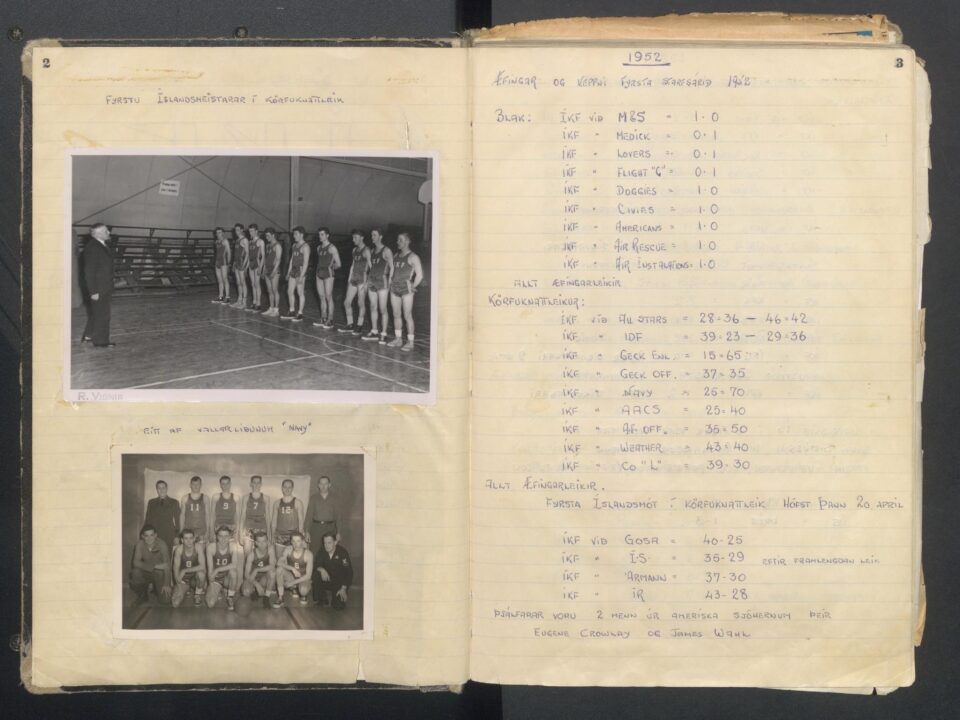 2
FYRSTU ÍSLANDSMEISTARAR Í KÖRFUKNATTLEIK
R. VIGNIR
EITT AF VALLARLIÐUNUM "NAVY"
11 9 7 12
8 10 4 6
3
1952
ÆFINGAR OG KEPPNI FYRSTA STARFSÁRIÐ 1952
BLAK: ÍKF VIÐ M&S = 1-0
ÍKF " MEDICK = 0-1
ÍKF " LOVERS = 0-1
ÍKF " FLIGHT "C" = 0-1
ÍKF " DOGGIES = 1-0
ÍKF " CIVIES = 1-0
ÍKF " AMERICANS = 1-0
ÍKF " AIR RESCUE = 1-0
ÍKF " AIR INSTALATIONS = 1-0
ALLT ÆFINGARLEIKIR
KÖRFUKNATTLEIKUR:
ÍKF VIÐ ALL STARS = 28=36 — 46=42
ÍKF " IDF = 39=23 — 29=36
ÍKF " GECK ENL. = 15=65
ÍKF " GECK OFF. = 37=35
ÍKF " NAVY = 25=70
ÍKF " AACS = 25=40
ÍKF " AF OFF. = 35=50
ÍKF " WEATHER = 43=40
ÍKF " CO "L" = 39-30
ALLT ÆFINGARLEIKIR.
FYRSTA ÍSLANDSMÓT Í KÖRFUKNATTLEIK HÓFST ÞANN 20 APRIL
ÍKF VIÐ GOSA = 40-25
ÍKF " Í.S. = 35-29 EFTIR FRAMLENGDAN LEIK
ÍKF " ÁRMANN = 37-30
ÍKF " ÍR = 43-28
ÞJÁLFARAR VORU 2 MENN ÚR AMERÍSKA SJÓHERNUM ÞEIR
EUGENE CROWLAY OG JAMES WAHL